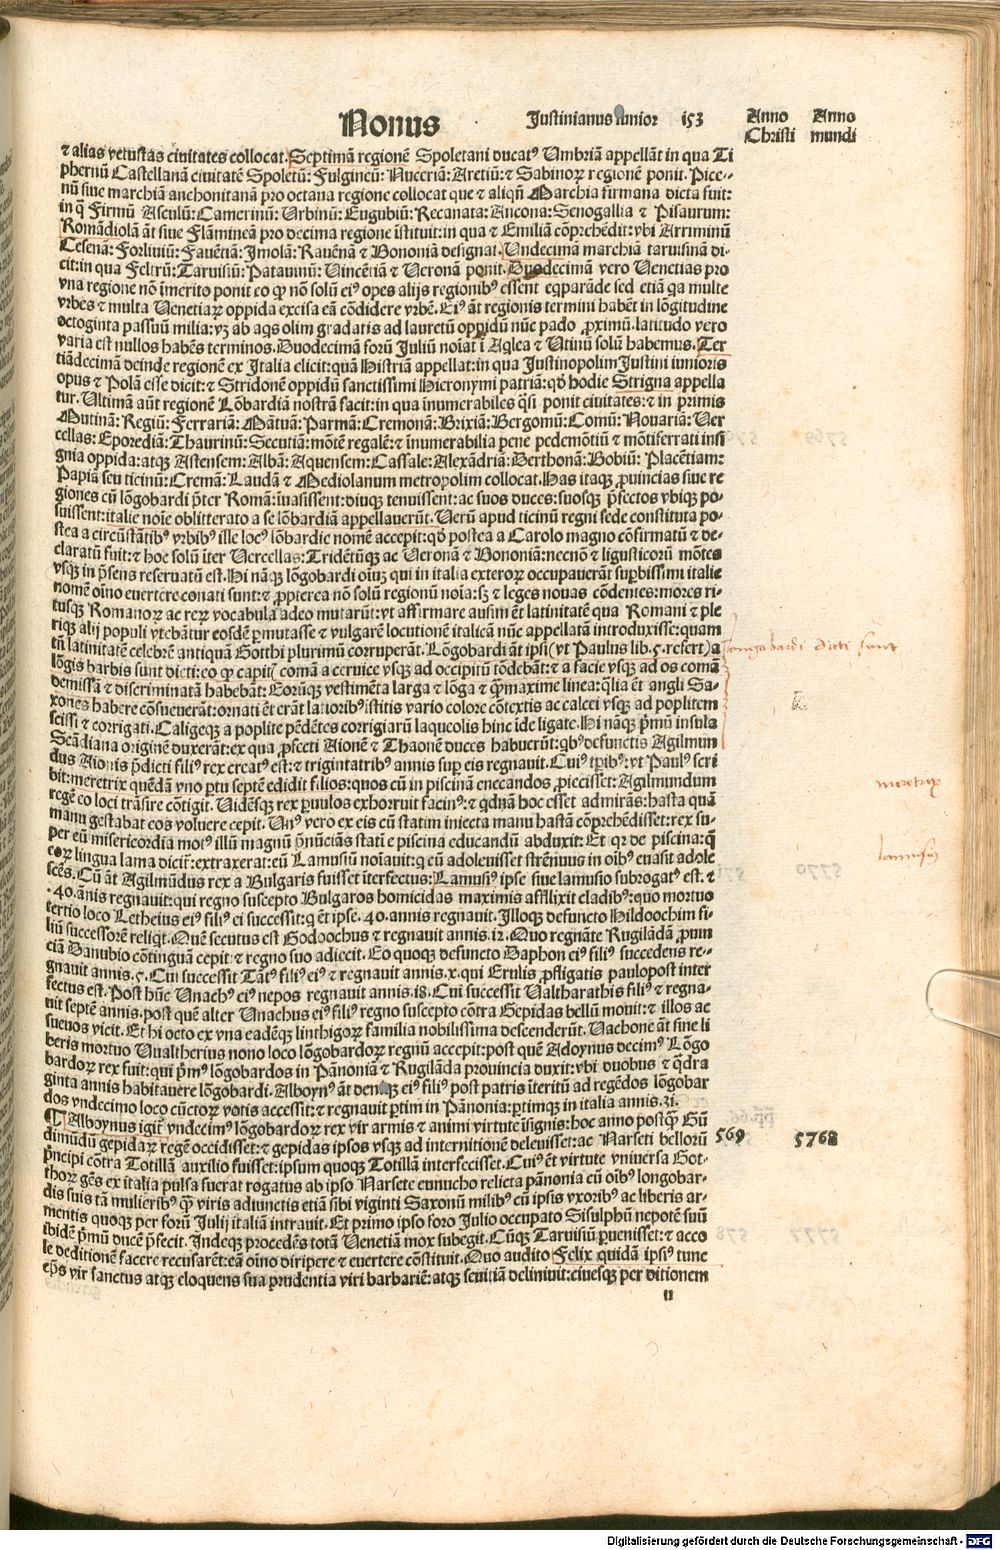 Nonus
Justinianus iunior 153
Anno Christi
Anno mundi
⁊ alias vetustas ciuitates collocat. Septimā regionē Spoletani ducatꝰ Umbriā appellāt in qua Ti
phernū Castellanā ciuitatē Spoletū: Fulgineū: Nuceriā: Aretiū: ⁊ Sabinoꝝ regionē ponit. Pice-
nū siue marchiā anchonitanā pro octaua regione collocat que ⁊ aliqn̄ Marchia firmana dicta fuit:
in q̄ Firmū Asculū: Camerinū: Urbinū: Eugubiū: Recanata: Ancona: Senogallia ⁊ Pisaurum:
Romādiolā āt siue Flāmineā pro decima regione īstituit: in qua ⁊ Emiliā cōprehēdit: vbi Arriminū
Cesenā: Forliuiū: Fauētiā: Jmolā: Rauēnā ⁊ Bononiā designat. Undecimā marchiā taruisinā di-
cit: in qua Feltrū: Taruisiū: Patauinū: Uincētiā ⁊ Ueronā ponit. Duodecimā vero Uenetias pro
vna regione nō īmerito ponit eo ꝙ nō solū eiꝰ opes alijs regionibꝰ essent eqparāde sed etiā qa multe
vrbes ⁊ multa Uenetiaꝝ oppida excisa eā cōdidere vrbē. Eiꝰ āt regionis termini habēt in lōgitudine
octoginta passuū milia: vꝫ ab aqs olim gradatis ad lauretū oppidū nūc pado ꝓximū. latitudo vero
varia est nullos habēs terminos. Duodecimā forū Juliū noīat ī Aglea ⁊ Utinū solū habemus. Ter
tiādecimā deinde regionē ex Jtalia elicit: quā Histriā appellat: in qua Justinopolim Justini iunioris
opus ⁊ Polā esse dicit: ⁊ Stridonē oppidū sanctissimi Hieronymi patriā: qð hodie Strigna appella
tur. Ultimā aūt regionē Lōbardiā nostrā facit: in qua īnumerabiles q̄si ponit ciuitates: ⁊ in primis
Mutinā: Regiū: Ferrariā: Mātuā: Parmā: Cremonā: Brixiā: Bergomū: Comū: Nouariā: Uer
cellas: Eporediā: Thaurinū: Secutiā: mōtē regalē: ⁊ īnumerabilia pene pedemōtiū ⁊ mōtiferrati insi
gnia oppida: atqꝫ Astensem: Albā: Aquensem: Cassale: Alexādriā: Berthonā: Bobiū: Placētiam:
Papiā seu ticinū: Cremā: Laudā ⁊ Mediolanum metropolim collocat. Has itaqꝫ ꝓuincias siue re
giones cū lōgobardi p̄ter Romā: inuasissent: diuqꝫ tenuissent: ac suos duces: suosqꝫ p̄fectos vbiqꝫ po-
suissent: italie noīe oblitterato a se lōbardiā appellauerūt. Uerū apud ticinū regni sede constituta po-
stea a circūstātibꝰ vrbibꝰ ille locꝰ lōbardie nomē accepit: qð postea a Carolo magno cōfirmatū ⁊ de-
claratū fuit: ⁊ hoc solū īter Uercellas: Tridētūqꝫ ac Ueronā ⁊ Bononiā: necnō ⁊ ligusticorū mōtes
vsqꝫ in p̄sens reseruatū est. Hi nāqꝫ lōgobardi oīuꝫ qui in italia exteroꝝ occupauerāt supbissimi italie
nomē oīno euertere conati sunt: ⁊ ꝓpterea nō solū regionū noīa: sꝫ ⁊ leges nouas cōdentes: mores ri-
tusqꝫ Romanoꝝ ac reꝝ vocabula adeo mutarūt: vt affirmare ausim ēt latinitatē qua Romani ⁊ ple
riqꝫ alij populi vtebātur eosdē ꝑmutasse ⁊ vulgarē locutionē italicā nūc appellatā introduxisse: quam
tn̄ latinitatē celebrē antiquā Gotthi plurimū corruperāt. Lōgobardi āt ipsi (vt Paulus lib. 5. refert) a
lōgis barbis sunt dicti: eo ꝙ capitꝭ comā a ceruice vsqꝫ ad occipitū tōdebāt: ⁊ a facie vsqꝫ ad os comā
demissā ⁊ discriminatā habebāt: Eorūqꝫ vestimēta larga ⁊ lōga ⁊ q̄maxime linea: q̄lia ēt angli Sa-
xones habere cōsueuerāt: ornati ēt erāt latioribꝰ istitis vario colore cōtextis ac calcei vsqꝫ ad poplitem
scissi ⁊ corrigati. Caligeqꝫ a poplite pēdētes corrigiarū laqueolis hinc īde ligate. Hi nāqꝫ p̄mū insula
Scādiana originē duxerāt: ex qua ꝓfecti Aionē ⁊ Thaonē duces habuerūt: qbꝰ defunctis Agilmun
dus Aionis p̄dicti filiꝰ rex creatꝰ est: ⁊ trigintatribꝰ annis sup eis regnauit. Cuiꝰ tꝑibꝰ: vt Paulꝰ scri
bit: meretrix quēdā vno ꝑtu septē edidit filios: quos cū in piscinā enecandos ꝓiecisset: Agilmundum
regē eo loci trāsire cōtigit. Uidēsqꝫ rex ꝑuulos exhorruit facinꝰ: ⁊ qdnā hoc esset admirās: hasta quā
manu gestabat eos voluere cepit. Unꝰ vero ex eis cū statim iniecta manu hastā cōprehēdisset: rex su-
per eū misericordia motꝰ illū magnū p̄nūciās statī e piscina educandū abduxit: Et qr de piscina: q̄
eoꝝ lingua lama dicit͛: extraxerat: eū Lamusiū noīauit: q cū adoleuisset strēnuus in oībꝰ euasit adole
scēs. Cū āt Agilmūdus rex a Bulgaris fuisset īterfectus: Lamusiꝰ ipse siue lamusio subrogatꝰ est. ⁊
.40. ānis regnauit: qui regno suscepto Bulgaros homicidas maximis afflixit cladibꝰ: quo mortuo
tertio loco Letheius eiꝰ filiꝰ ei successit: q ēt ipse. 40. annis regnauit. Jlloqꝫ defuncto Hildoochim fi-
liū successorē reliqt. Quē secutus est Godoochus ⁊ regnauit annis. 12. Quo regnāte Rugilādā ꝓuin
ciā Danubio cōtinguā cepit: ⁊ regno suo adiecit. Eo quoqꝫ defuncto Daphon eiꝰ filiꝰ succedens re-
gnauit annis. 5. Cui successit Tātꝰ filiꝰ eiꝰ ⁊ regnauit annis. x. qui Erulis ꝓfligatis paulopost inter
fectus est. Post hūc Unachꝰ eiꝰ nepos regnauit annis. 18. Cui successit Ualtharathis filiꝰ ⁊ regna-
uit septē annis. post quē alter Unachus eiꝰ filiꝰ regno suscepto cōtra Gepidas bellū mouit: ⁊ illos ac
sueuos vicit. Et hi octo ex vna eadēqꝫ linthigoꝝ familia nobilissima descenderūt. Uachone āt sine li
beris mortuo Uualtherius nono loco lōgobardoꝝ regnū accepit: post quē Adoynus decimꝰ Lōgo
bardoꝝ rex fuit: qui p̄mꝰ lōgobardos in Pānoniā ⁊ Rugilāda prouincia duxit: vbi duobus ⁊ q̄dra
ginta annis habitauere lōgobardi. Alboynꝰ āt deniqꝫ eiꝰ filiꝰ post patris īteritū ad regēdos lōgobar
dos vndecimo loco cūctoꝝ votis accessit: ⁊ regnauit ꝑtim in Pānonia: ꝑtimqꝫ in italia annis. 31.
¶ Alboynus igit͛ vndecimꝰ lōgobardoꝝ rex vir armis ⁊ animi virtute īsignis: hoc anno postq̄ Gū
dimūdū gepidaꝝ regē occidisset: ⁊ gepidas ipsos vsqꝫ ad internitionē deleuisset: ac Narseti bellorū
p̄ncipi cōtra Totillā auxilio fuisset: ipsum quoqꝫ Totillā interfecisset. Cuiꝰ ēt virtute vniuersa Got-
thoꝝ gēs ex italia pulsa fuerat rogatus ab ipso Narsete eunucho relicta pānonia cū oībꝰ longobar-
dis suis tā mulieribꝰ q̄ viris adiunctis etiā sibi viginti Saxonū milibꝰ cū ipsis vxoribꝰ ac liberis ar-
mentis quoqꝫ per forū Julij italiā intrauit. Et primo ipso foro Julio occupato Sisulphū nepotē suū
ibidē p̄mū ducē p̄fecit. Jndeqꝫ procedēs totā Uenetiā mox subegit. Cūqꝫ Taruisiū ꝑuenisset: ⁊ acco
le deditionē facere recusarēt: eā oīno diripere ⁊ euertere cōstituit. Quo audito Felix quidā ipsiꝰ tunc
ep̄s vir sanctus atqꝫ eloquens sua prudentia viri barbariē: atqꝫ seuitiā deliniuit: eiusqꝫ per ditionem
u
longobardi dicti sunt
meretrix
lamusiꝰ
569 5768
Digitalisierung gefördert durch die Deutsche Forschungsgemeinschaft - DFG